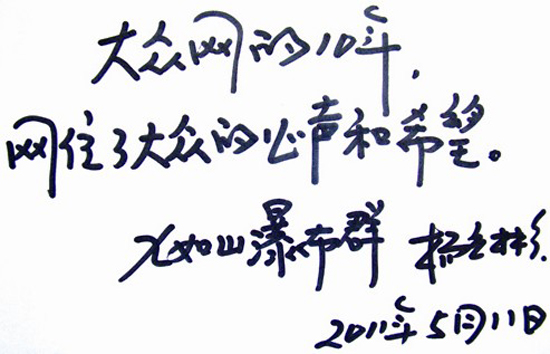 大众网的10年,
网住了大众的心声和希望。
九如山瀑布群
2011年5月11日